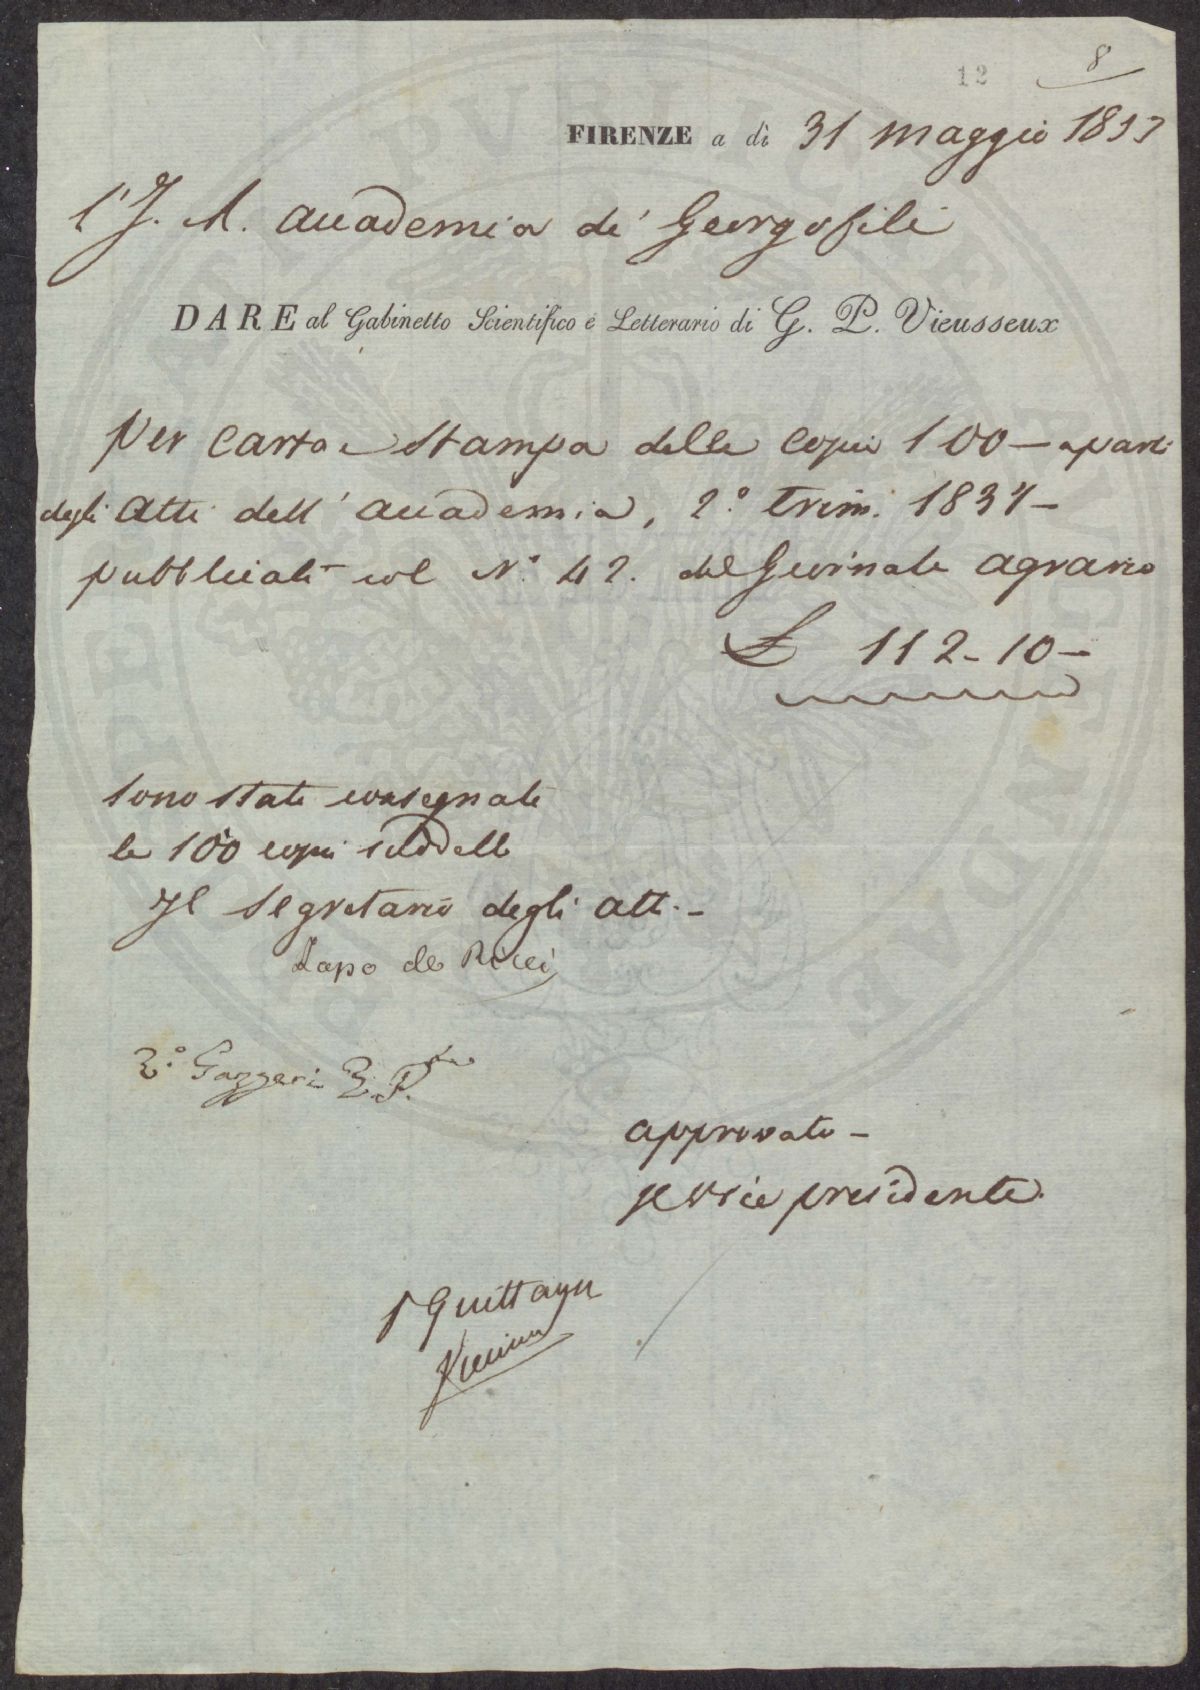 12
8
FIRENZE a dì 31 maggio 1837
l'I. A. Accademia de' Georgofili
DARE al Gabinetto Scientifico e Letterario di G. P. Vieusseux
Per carta e stampa delle copie 100 — a parte
degli Atti dell'Accademia, 2.° trim. 1837 —
pubblicati col N.° 42. del Giornale agrario
£ 112 - 10 —
Sono state consegnate
le 100 copie suddette
Il Segretario degli Atti. —
Lapo de Ricci
Gazzeri
approvato —
Il Vice presidente